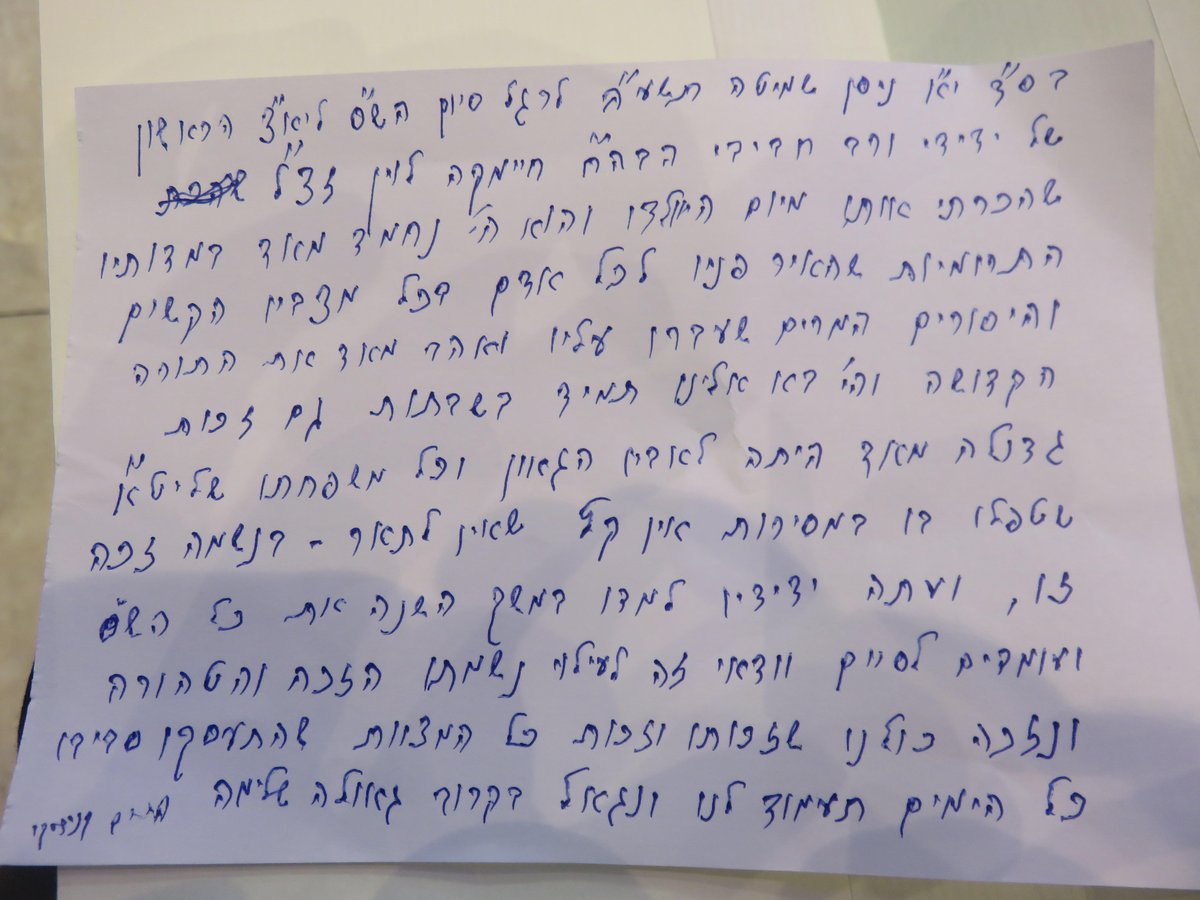 בס"ד י"א ניסן שמיטה תשע"ה לרגל סיום הש"ס ליא"צ הראשון
של ידידי ורב חביבי הבה"ח חיימקה לוין זצ"ל
שהכרתי אותו מיום היולדו והוא הי' נחמד מאוד במדותיו
התרומיות שהאיר פניו לכל אדם בכל מצביו הקשים
והיסורים המרים שעברו עליו ואהב מאוד את התורה
הקדושה והי' בא אלינו תמיד בשבתות גם זכות
גדולה מאוד היתה לאביו הגאון וכל משפחתו שליט"א
שטפלו בו במסירות אין קץ שאין לתאר - בנשמה זכה
זו, ועתה ידידיו למדו במשך השנה את כל הש"ס
ועומדים לסיים וודאי זה לעילוי נשמתו הזכה והטהורה
ונזכה כולנו שזכותו וזכות כל המצוות שהתעסקו סביבו
כל הימים תעמוד לנו ונגאל בקרוב גאולה שלימה